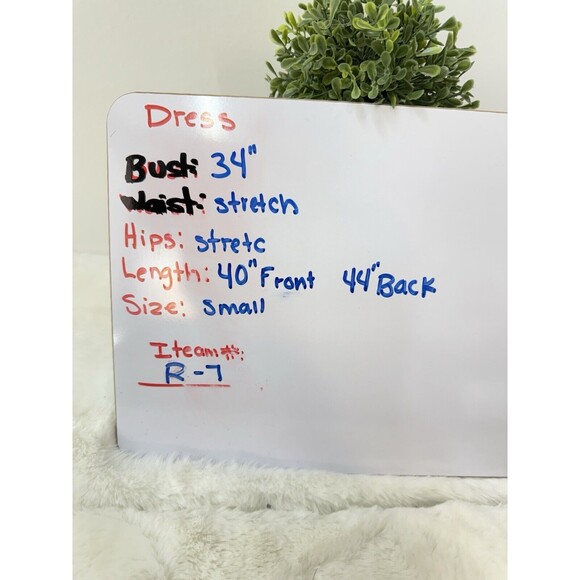 Dress
Bust: 34"
Waist: stretch
Hips: stretc
Length: 40" Front 44" Back
Size: Small
Iteam#:
R-7